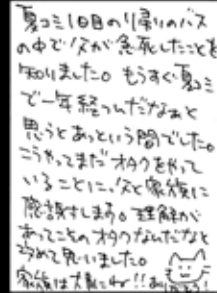 夏コミ1日目の帰りのバス
の中で父が急死したことを
知りました。もうすぐ夏コミ
で一年経つんだなぁと
思うとあっという間でした。
こうやってまだオタクをやって
いることに、父と家族に
感謝します。理解が
あってこそのオタクなんだなと
改めて思いました。
家族は大事にね!!